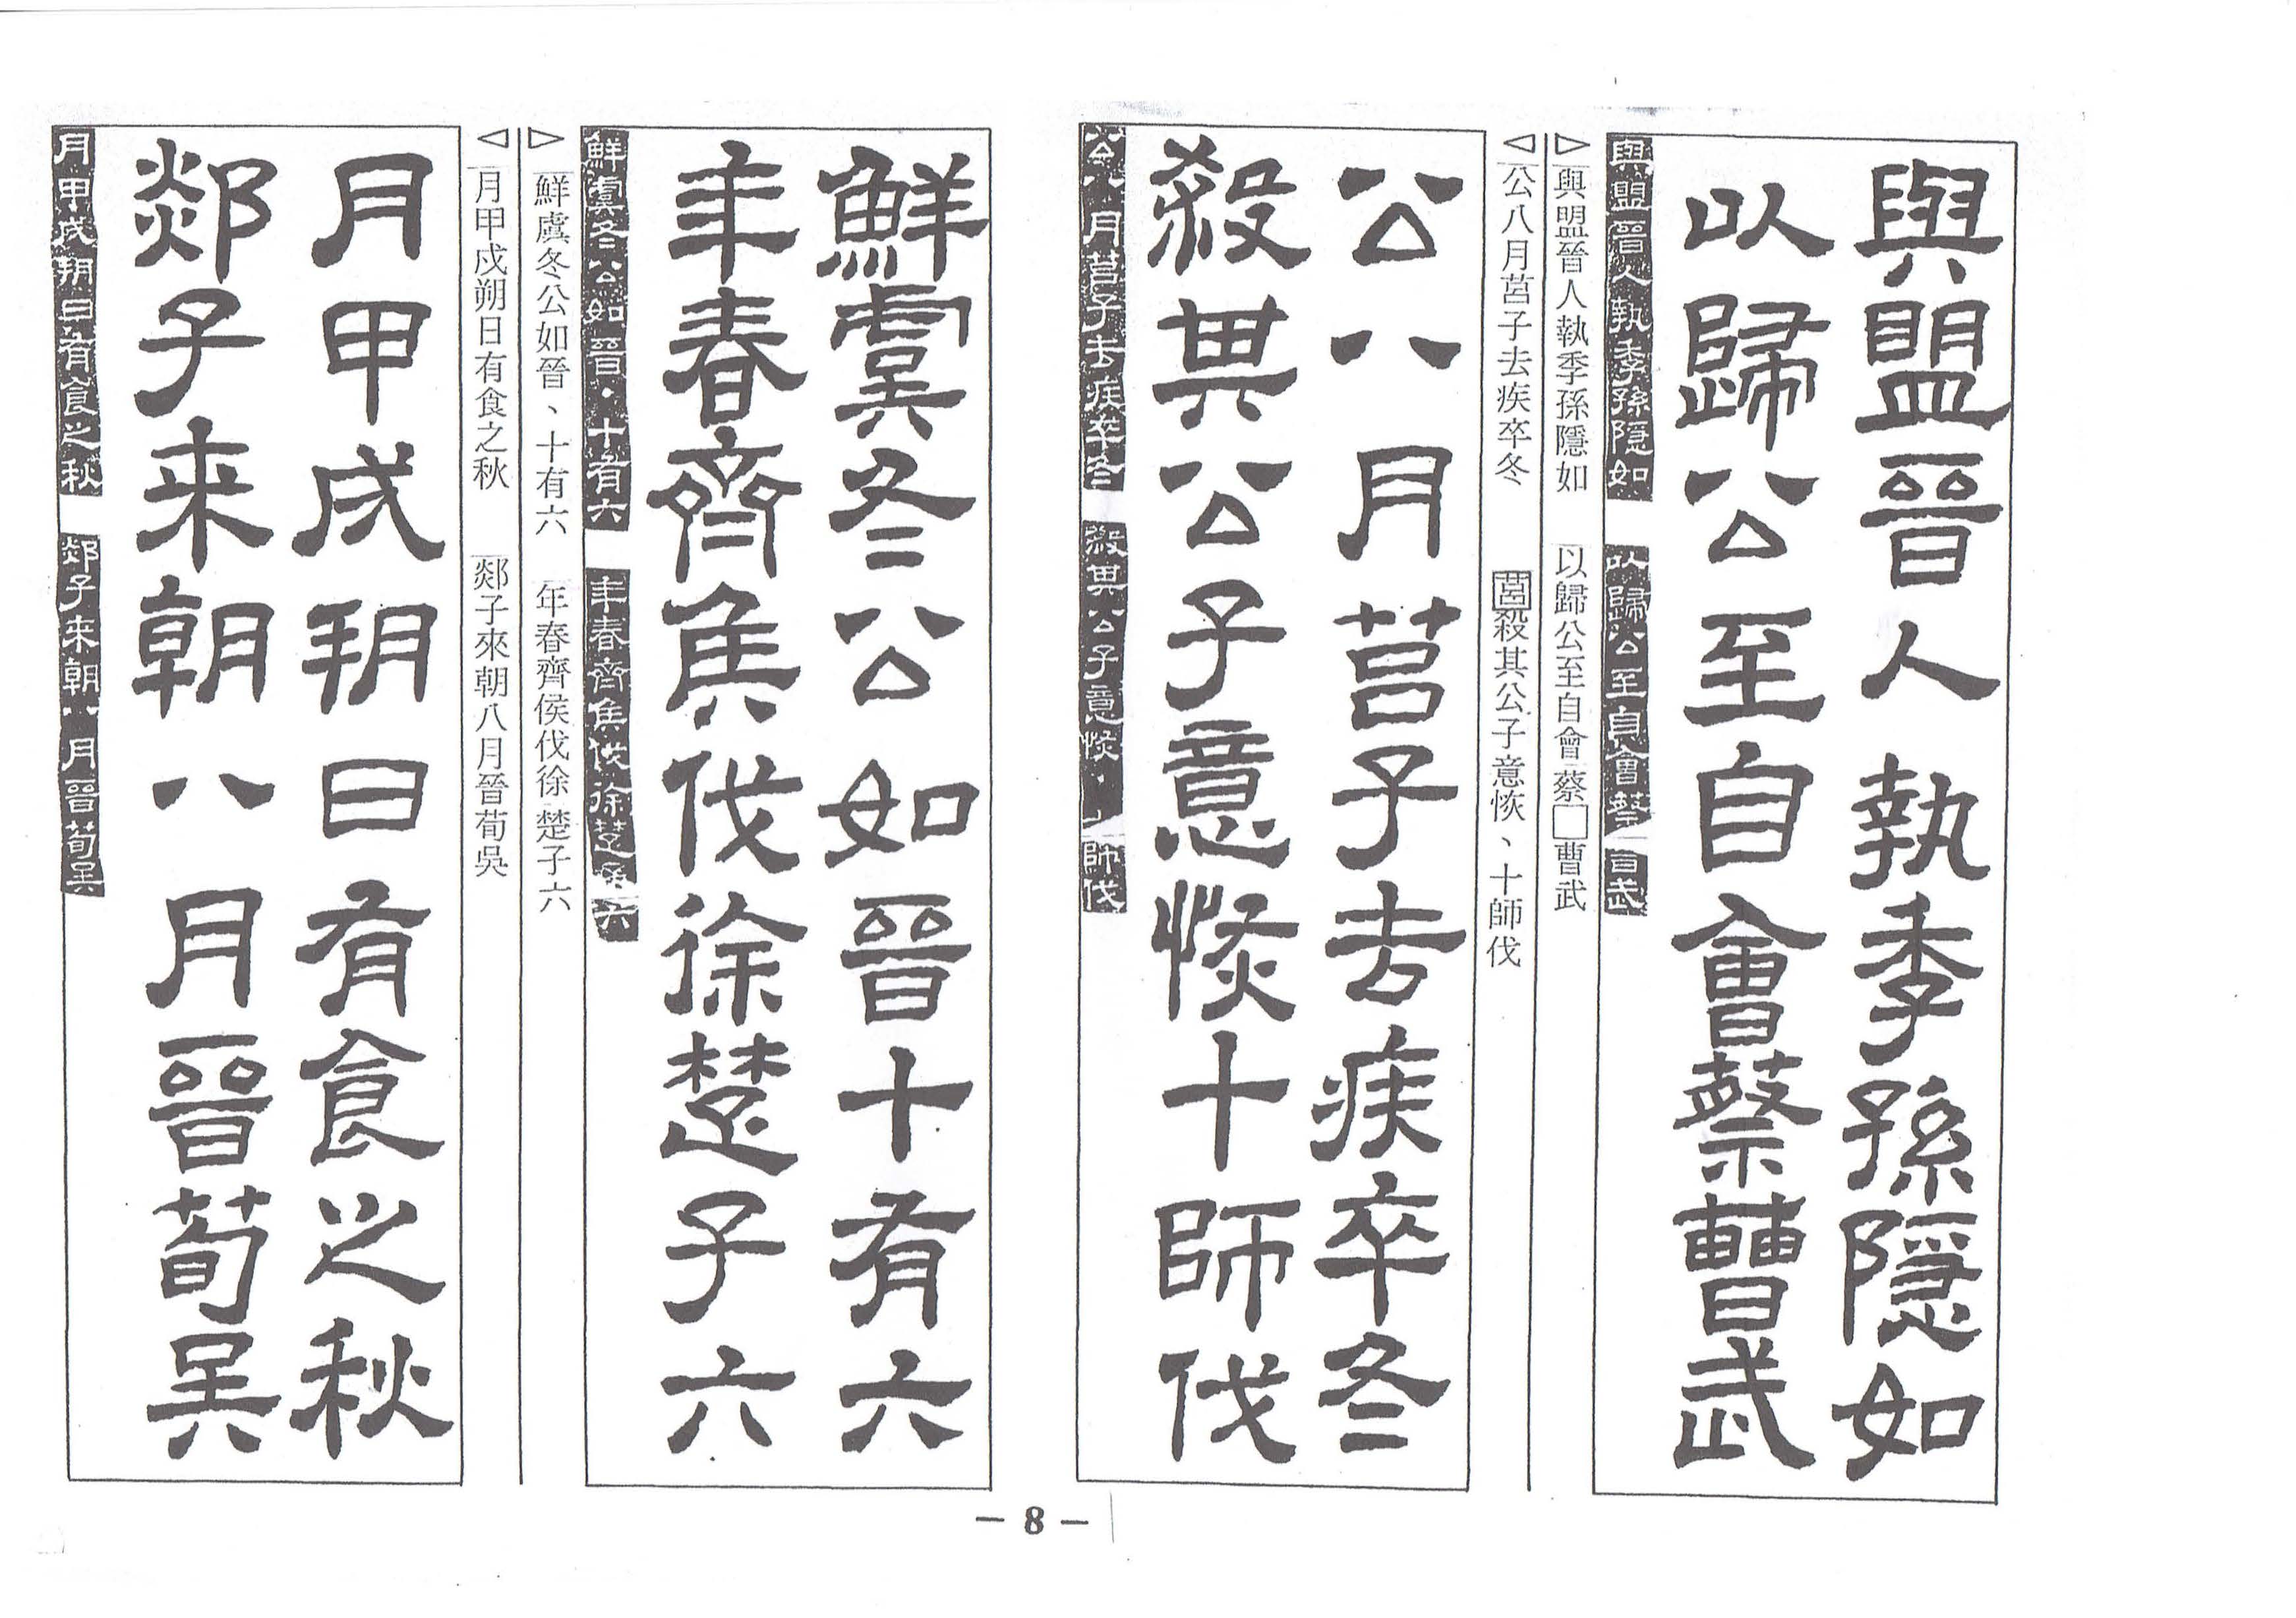 與盟晉人執季孫隱如
以歸公至自會蔡曹武
與盟晉人執季孫隱如
以歸公至自會蔡
▷與盟晉人執季孫隱如 以歸公至自會蔡□曹武
◁公八月莒子去疾卒冬 莒殺其公子意恢、十師伐
公八月莒子去疾卒冬
殺其公子意恢十師伐
公八月莒子去疾卒冬
殺其公子意恢 師伐
鮮虞冬公如晉十有六
年春齊侯伐徐楚子六
鮮虞冬公如晉・十有六
年春齊侯伐徐楚 六
▷鮮虞冬公如晉、十有六 年春齊侯伐徐楚子六
◁月甲戍朔日有食之秋 郯子來朝八月晉荀吳
月甲戌朔日有食之秋
郯子来朝八月晉荀吳
月甲戌朔日有食之秋
郯子来朝八月晉荀吳
— 8 —